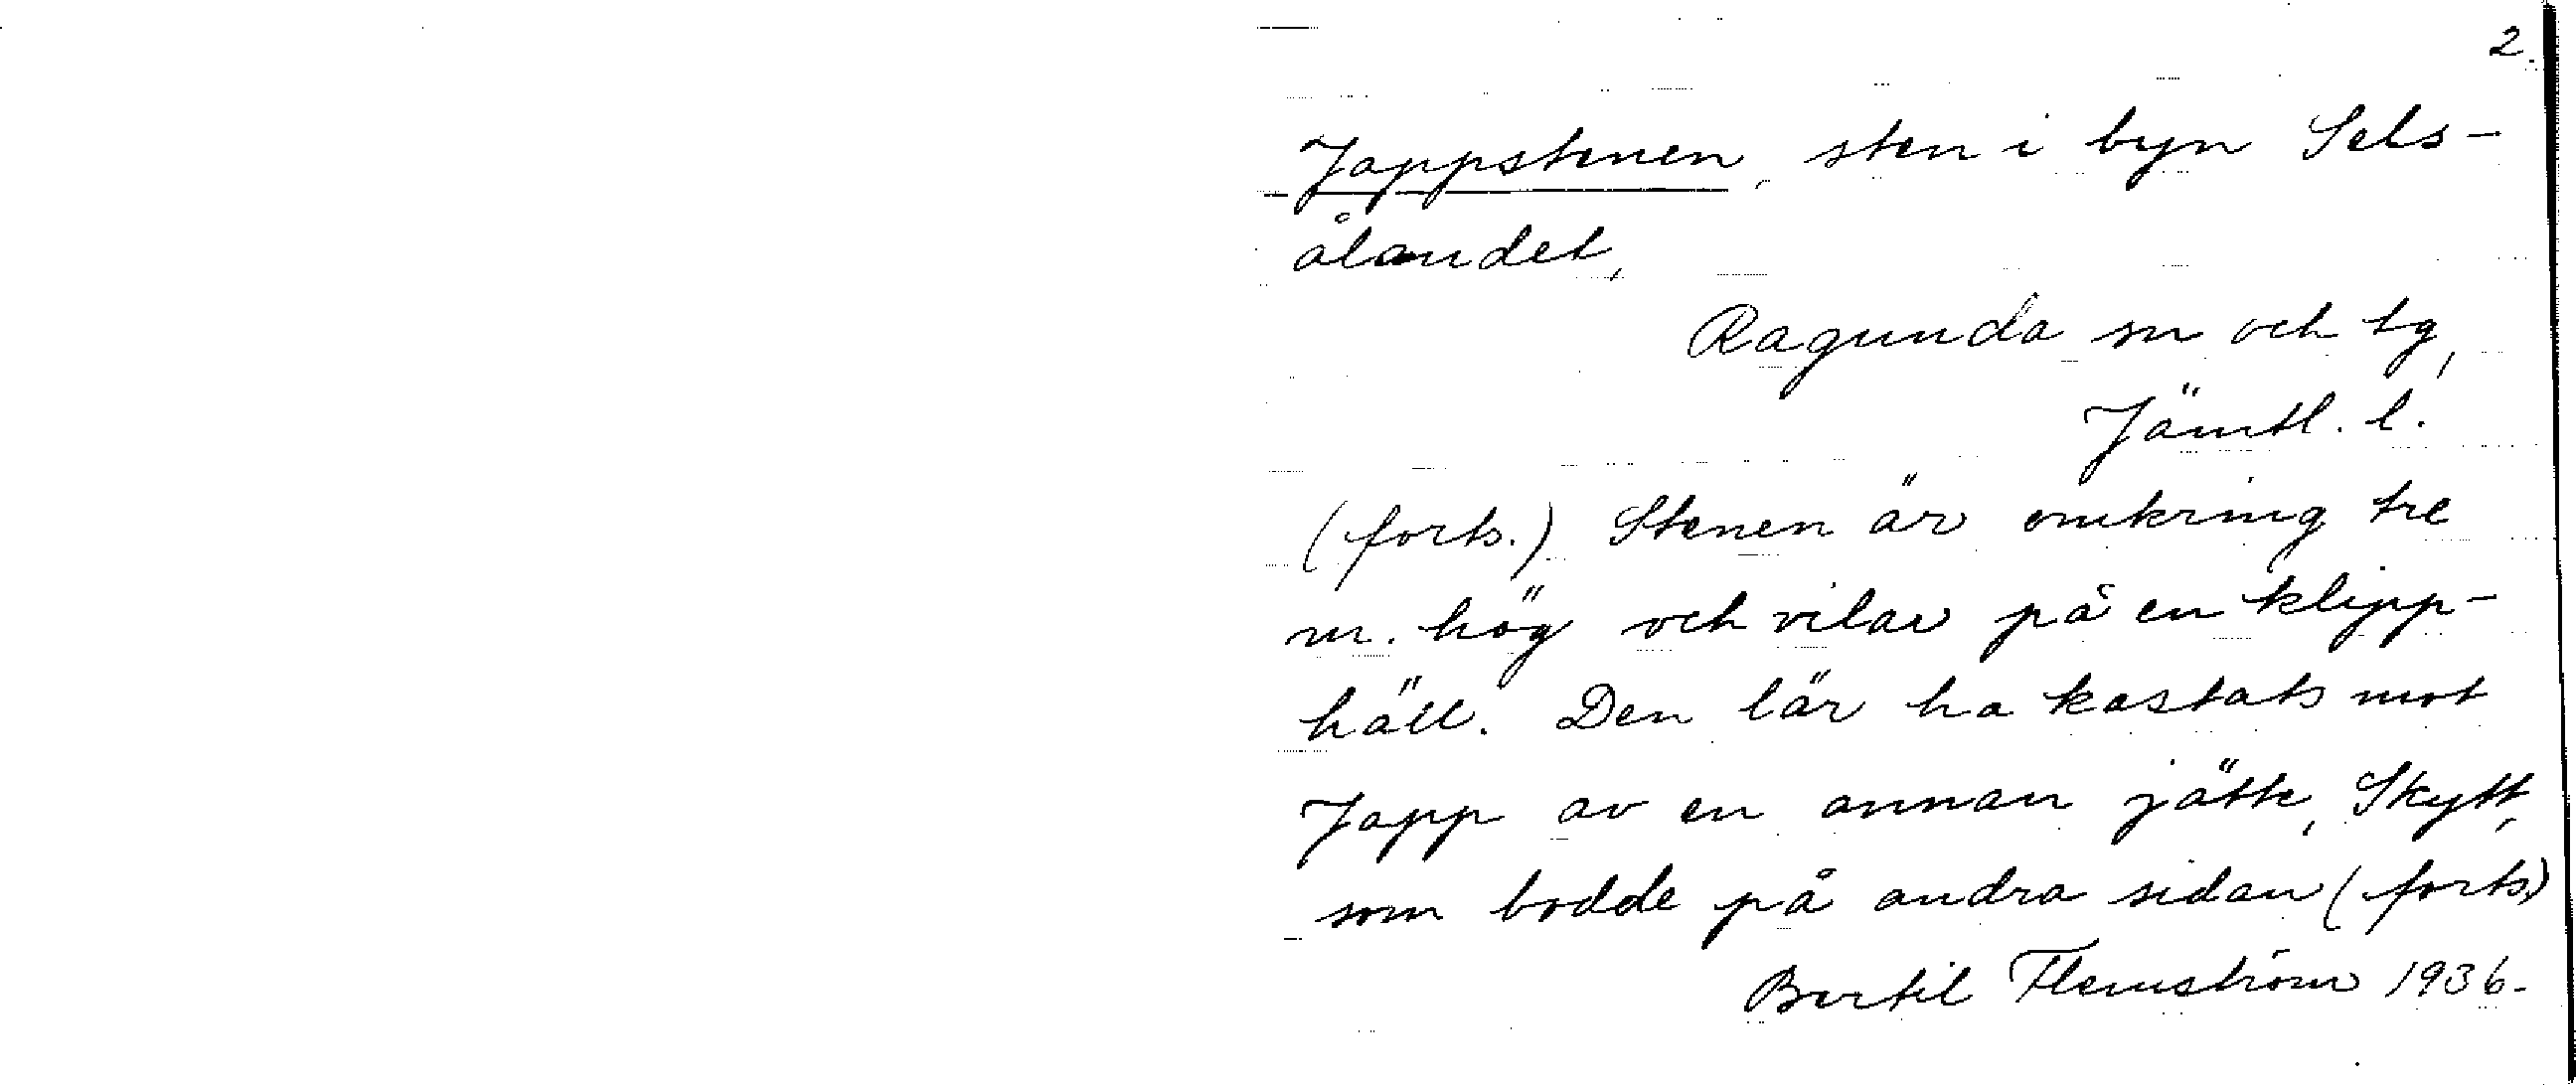 2.
Jappstenen, sten i byn Sels-
ålandet,
Ragunda sn och tg,
Jämtl. l.
(forts.) Stenen är omkring tre
m. hög och vilar på en klipp-
häll. Den lär ha kastats mot
Japp av en annan jätte, Skytt,
som bodde på andra sidan (forts.)
Bertil Flemström 1936.